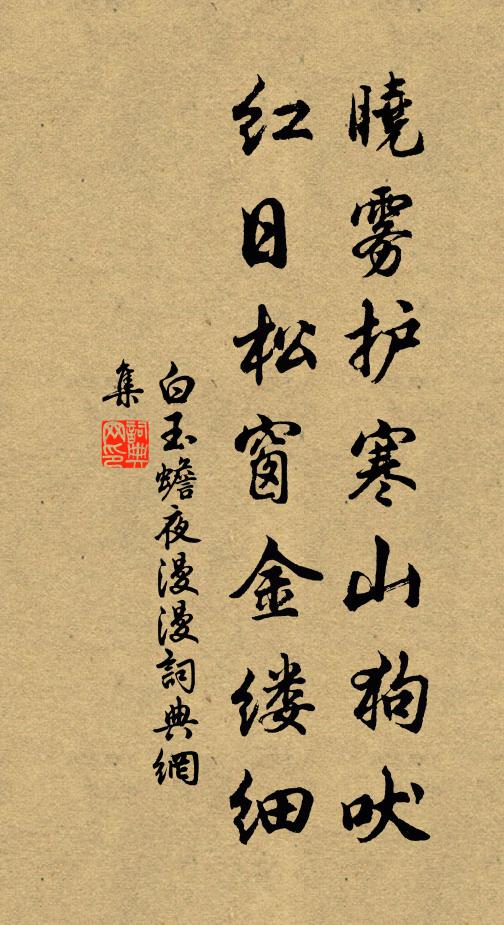 曉雾护寒山狗吠
红日松窗金缕细
白玉蟾夜漫漫詞典網
集
詞典
网印